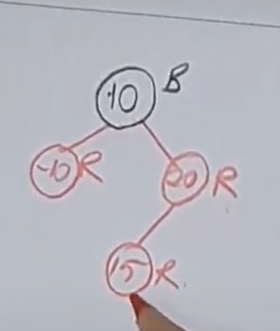 10 B
-10 R 20 R
15 R